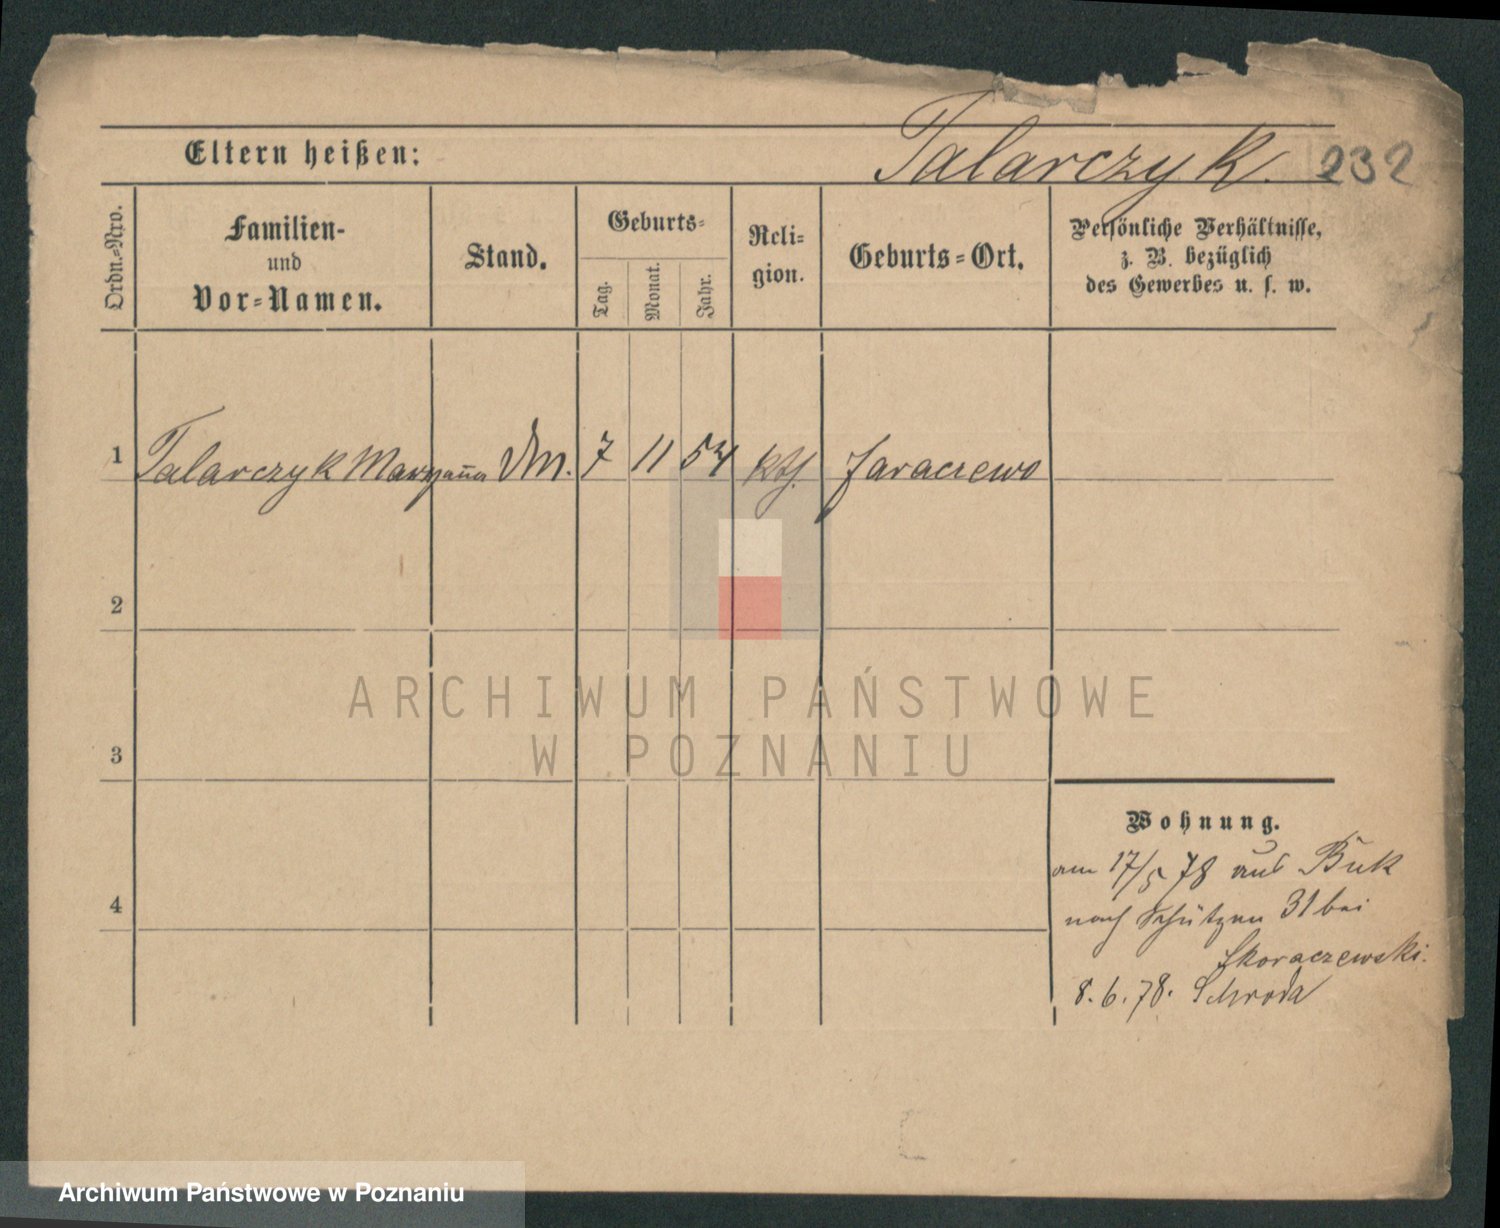 Eltern heißen:
Talarczyk. 232
Ordn.=Nro.
Familien-
und
Vor=Namen.
Stand.
Geburts=
Tag.
Monat.
Jahr.
Reli=
gion.
Geburts=Ort.
Persönliche Verhältnisse,
z. B. bezüglich
des Gewerbes u. s. w.
1 Talarczyk Maryanna 7 11 54 kth. Jaraczewo
2
ARCHIWUM PAŃSTWOWE
W POZNANIU
3
Wohnung.
am 17/5 78 aus Buk
4
nach Schützen 31 bei
Skoraczewski.
8.6.78. Schroda
Archiwum Państwowe w Poznaniu